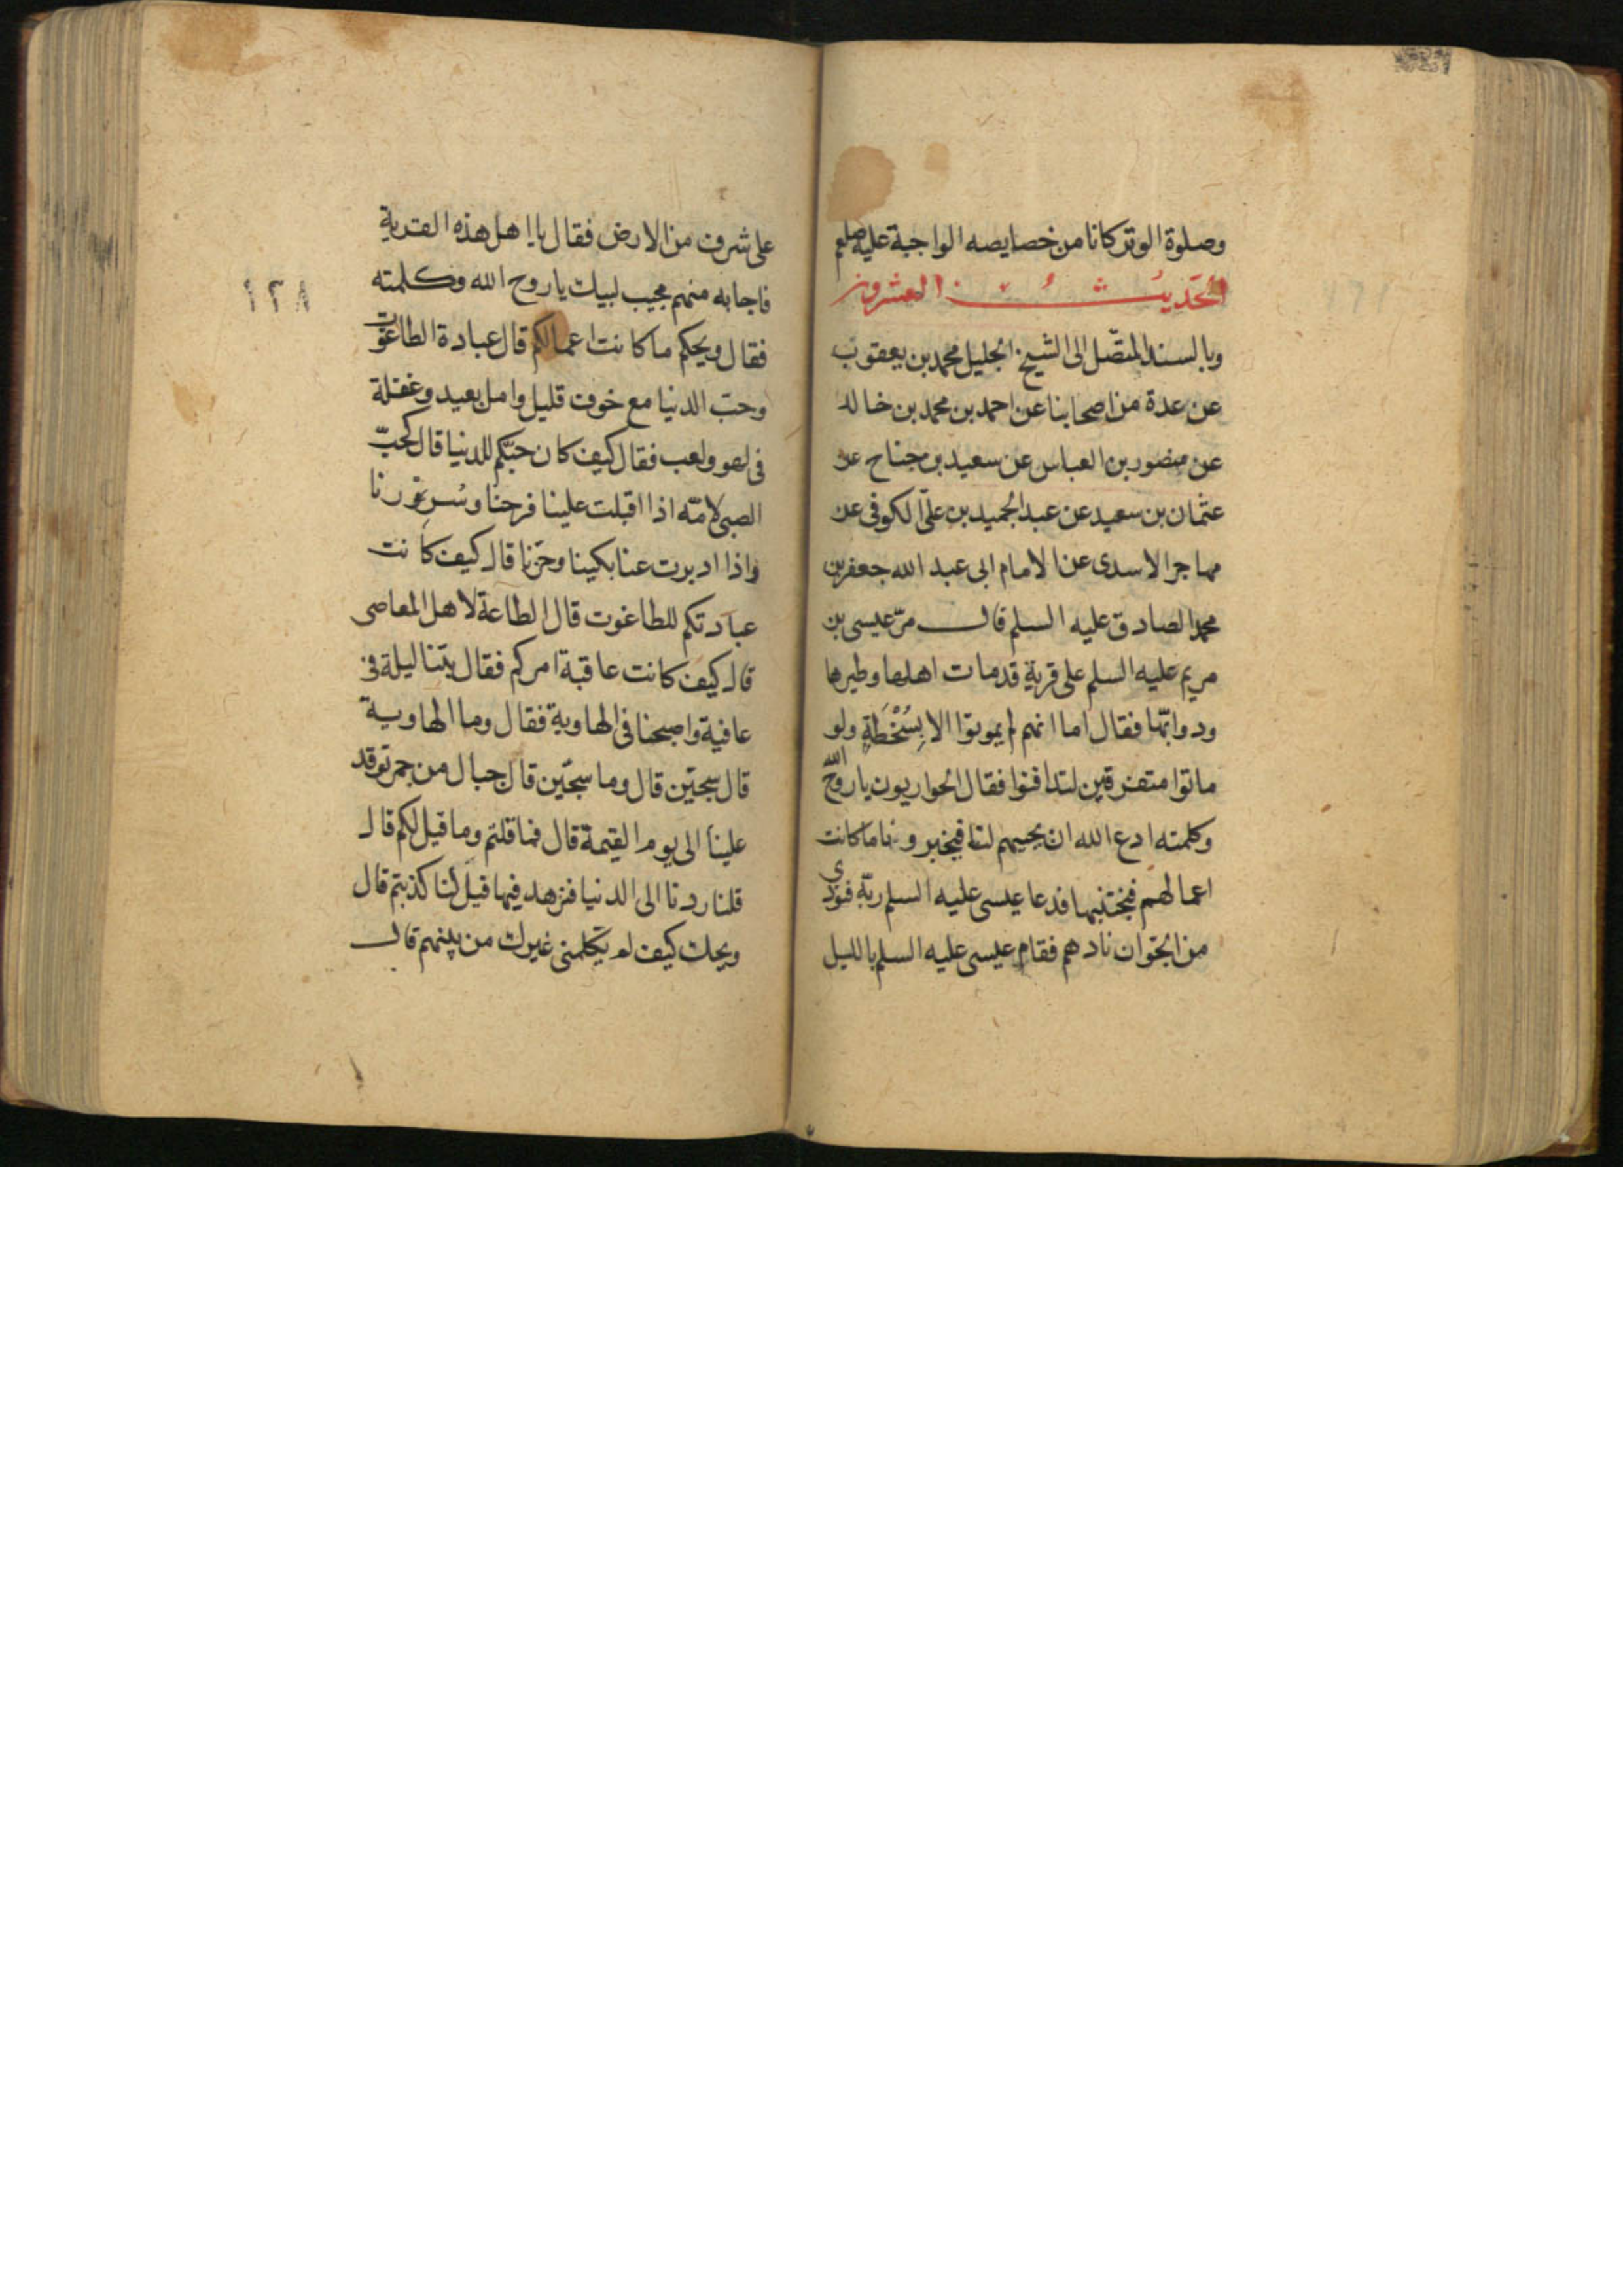 وصلوة الوتر كانا من خصايصه الواجبة عليه صلعم
الحديث العشرون
وبالسند المتصّل الى الشيخ الجليل محمد بن يعقوب
عن عدة من اصحابنا عن احمد بن محمد بن خالد
عن منصور بن العباس عن سعيد بن جناح عن
عثمان بن سعيد عن عبد الحميد بن علىّ الكوفى عن
مهاجر الاسدى عن الامام ابى عبد الله جعفر بن
محمد الصادق عليه السلم قال مرّ عيسى بن
مريم عليه السلم على قرية قد مات اهلها وطيرها
ودوابّها فقال اما انهم لم يموتوا الا بِسُخْطَةٍ ولو
ماتوا متفرقين لتدافنوا فقال الحواريون يا روح الله
وكلمته ادع الله ان يحييهم لنا فيخبرونا ما كانت
اعمالهم فنجتنبها فدعا عيسى عليه السلم ربّه فنودى
من الجوّ ان نادهم فقام عيسى عليه السلم بالليل
على شرف من الارض فقال يا اهل هذه القرية
فاجابه منهم مجيب لبيك يا روح الله وكلمته
فقال ويحكم ما كانت اعمالكم قال عبادة الطاغوت
وحبّ الدنيا مع خوف قليل وامل بعيد وغفلة
فى لهو ولعب فقال كيف كان حبّكم للدنيا قال كحبّ
الصبى لامّه اذا اقبلت علينا فرحنا وسررنا
واذا ادبرت عنا بكينا وحزنا قال كيف كانت
عبادتكم للطاغوت قال الطاعة لاهل المعاصى
قال كيف كانت عاقبة امركم فقال بتنا ليلة فى
عافية واصبحنا فى الهاوية فقال وما الهاوية
قال سجّين قال وما سجّين قال جبال من جمر توقد
علينا الى يوم القيمة قال فما قلتم وما قيل لكم قال
قلنا ردنا الى الدنيا فنزهد فيها قيل لنا كذبتم قال
ويحك كيف لم يكلمنى غيرك من بينهم قال
١٢٨